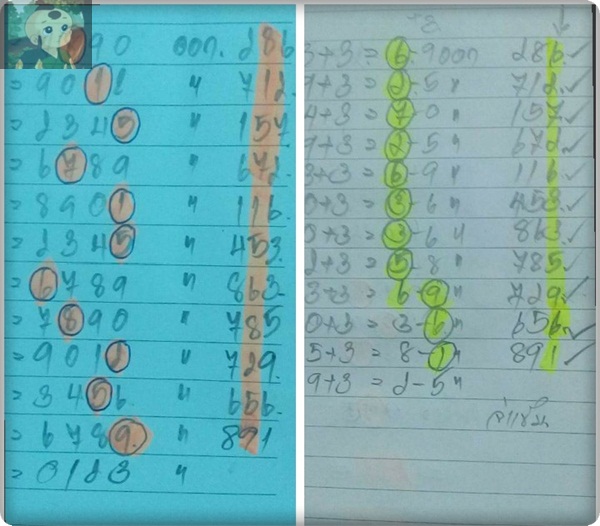 90 ออก. 286
= 9011 " 712.
= 2345 " 157
= 6789 " 672.
= 8901 " 116.
= 2345 " 453.
= 6789 " 863
= 7890 " 785
= 9012 " 729.
= 3456. " 656.
= 6789. " 891
= 0123 "
+3
3+3 = 6-9 ออก 286
9+3 = 2-5 " 712
4+3 = 7-0 " 157
9+3 = 2-5 " 672
3+3 = 6-9 " 116
0+3 = 3-6 " 453
0+3 = 3-6 " 863
2+3 = 5-8 " 785
3+3 = 6-9 " 729
0+3 = 3-6 " 656
5+3 = 8-1 " 891
9+3 = 2-5 "